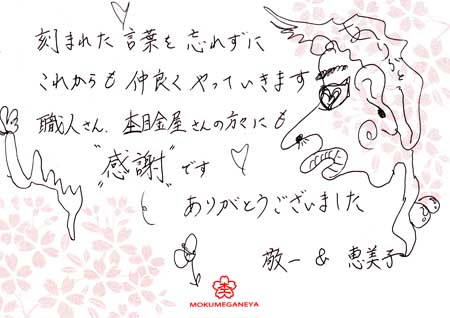 刻まれた言葉を忘れずに
これからも仲良くやっていきます
職人さん、杢目金屋さんの方々にも
"感謝"です
ありがとうございました
敬一 & 恵美子
MOKUMEGANEYA